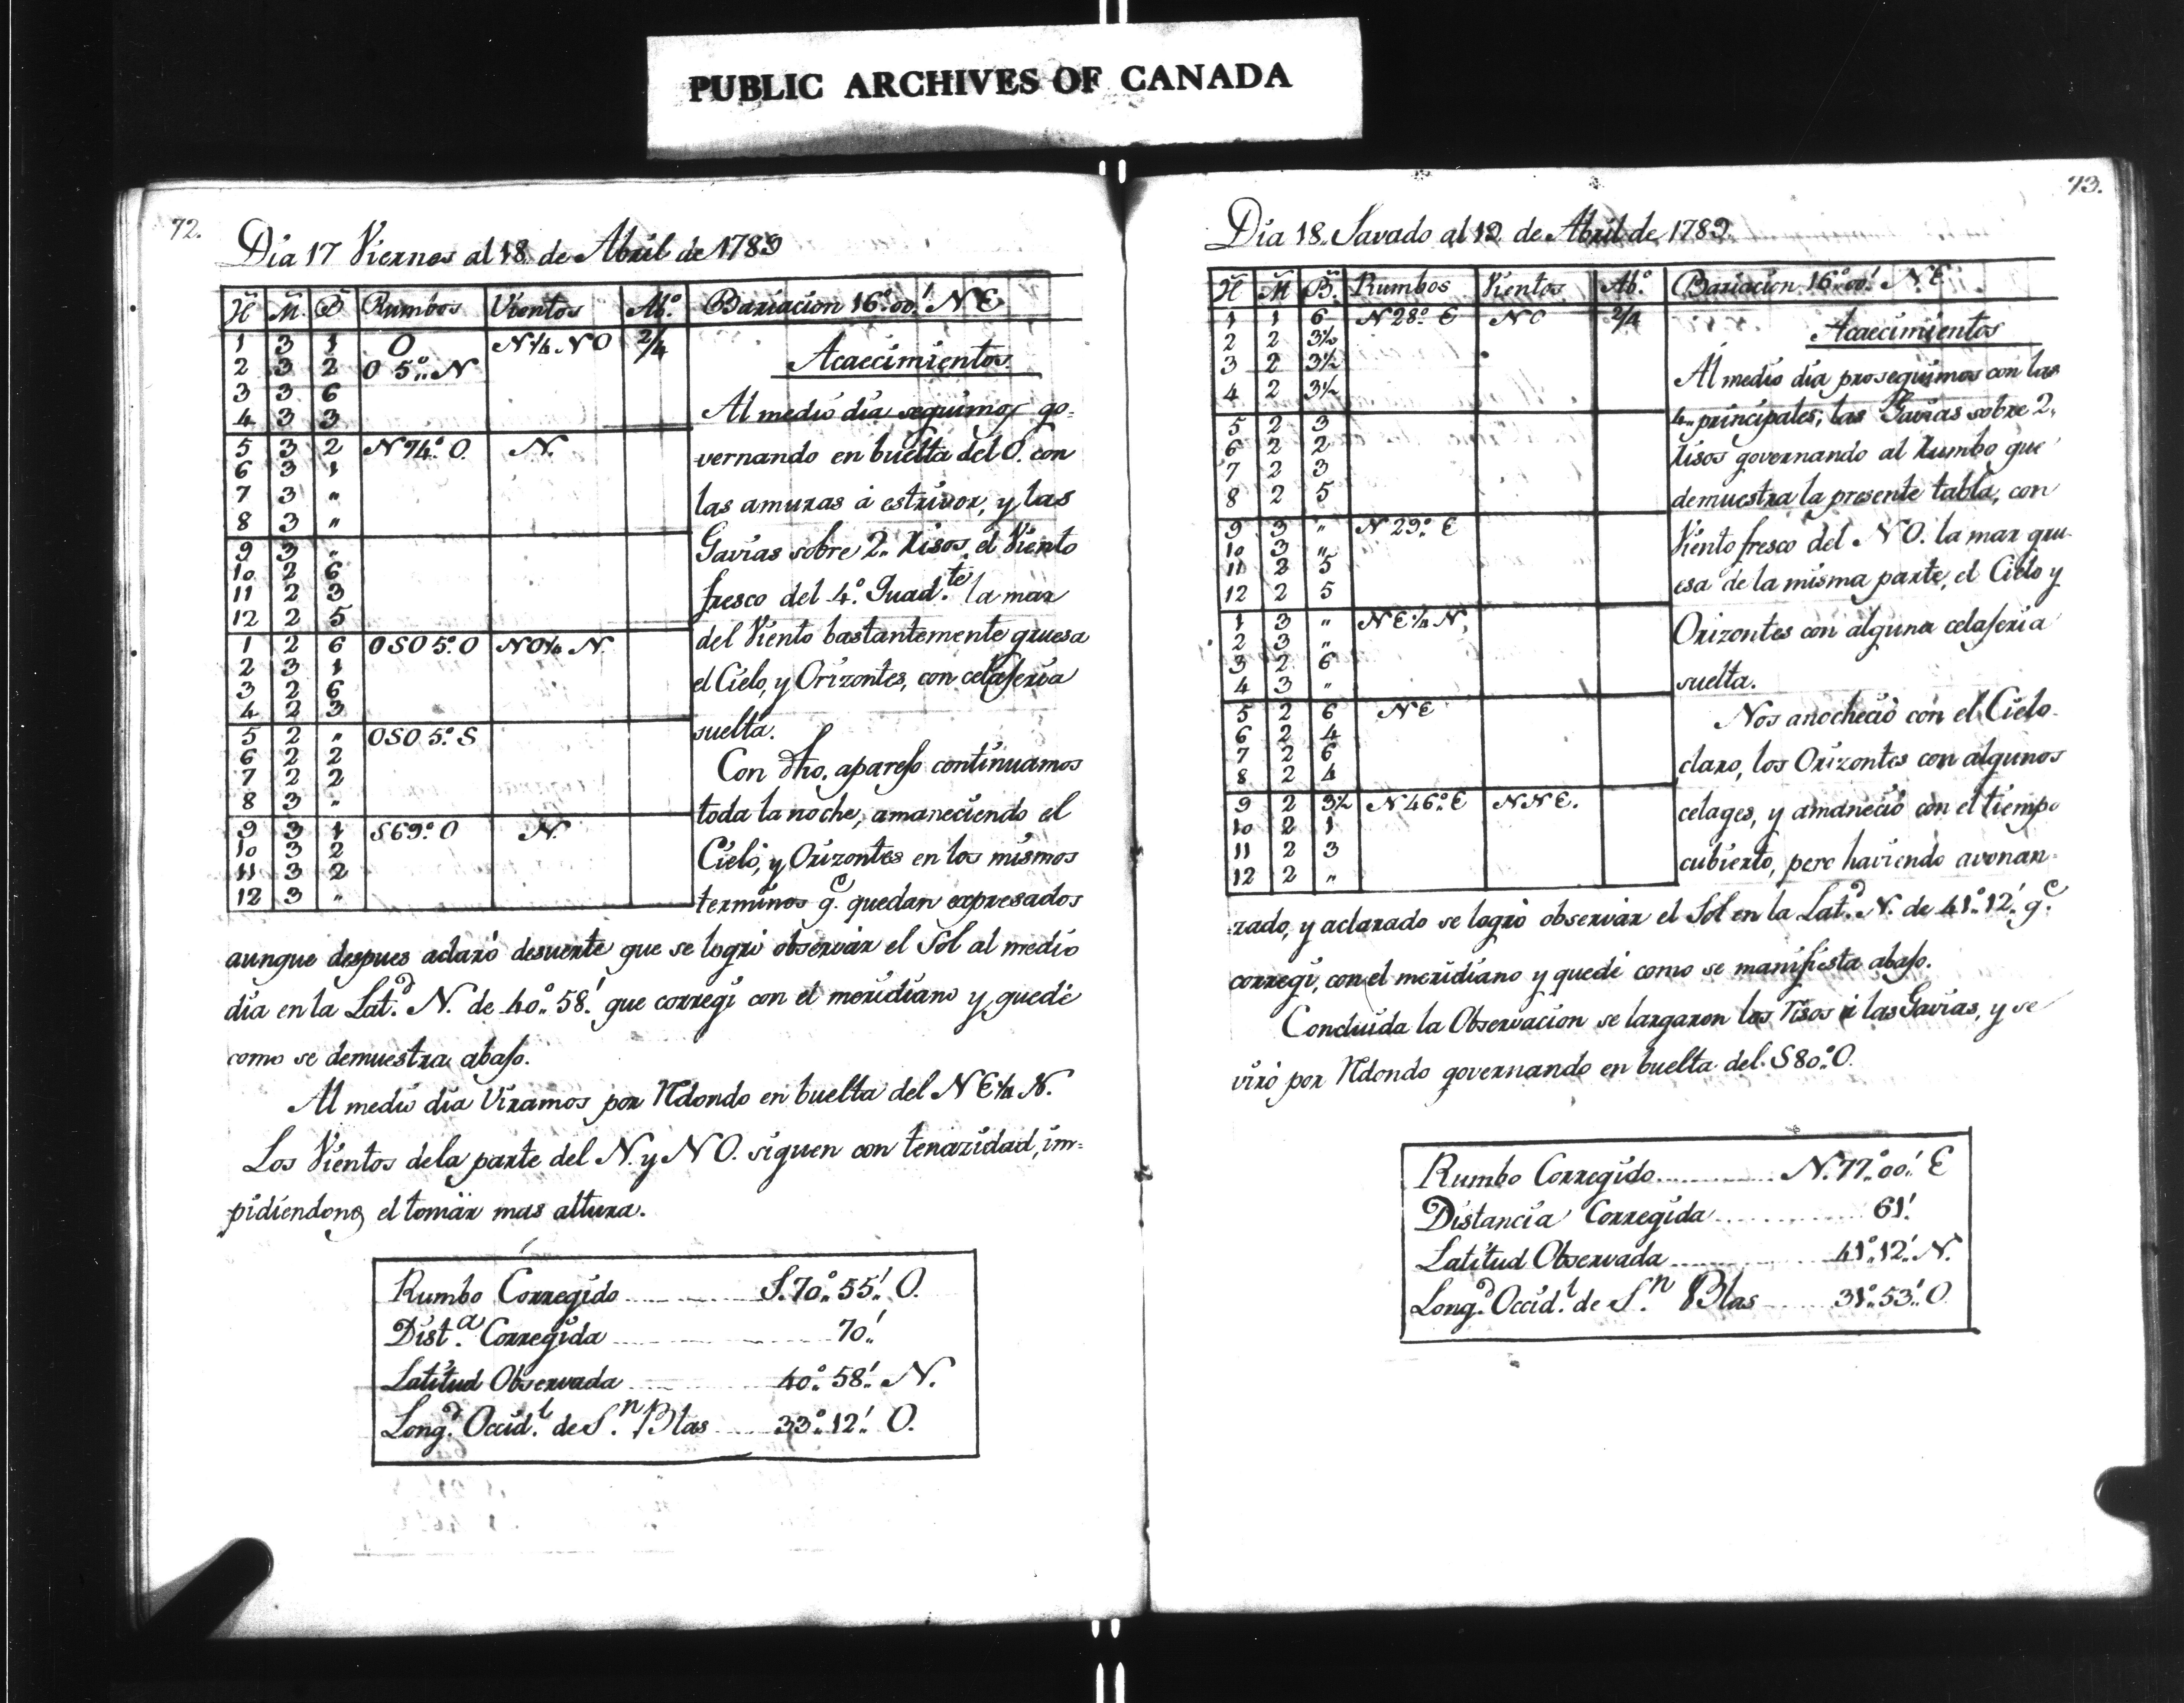 PUBLIC ARCHIVES OF CANADA
72.
Dia 17 Viernes al 18 de Abril de 1789
H M. B Rumbos Vientos Ab.º Bariacion 16º.00.' NE
1 3 1 O N¼NO 2/4
2 3 2 O 5º.. N
3 3 6
4 3 3
5 3 2 N74º. O. N.
6 3 1
7 3 "
8 3 "
9 3 "
10 2 6
11 2 3
12 2 5
1 2 6 OSO 5º. O NO¼N.
2 3 1
3 2 6
4 2 3
5 2 " OSO 5º. S
6 2 2
7 2 2
8 3 "
9 3 1 S69º. O N.
10 3 2
11 3 2
12 3 "
Acaecimientos.
Al medio dia seguimos go=
vernando en buelta del O. con
las amuras á estrivor, y las
Gavias sobre 2.. Risos, el Viento
fresco del 4.º Quad.te la mar
del Viento bastantemente gruesa
el Cielo, y Orizontes, con celajeria
suelta.
Con dho. aparejo continuamos
toda la noche, amaneciendo el
Cielo, y Orizontes en los mismos
terminos q.e quedan expresados
aunque despues aclaró desuerte que se logró observar el Sol al medio
dia en la Lat.d N. de 40º.. 58.' que corregi con el meridiano y quedé
como se demuestra abajo.
Al medio dia Viramos por Rdondo en buelta del NE¼N.
Los Vientos dela parte del N. y NO. siguen con tenazidad, im=
pidiendonos el tomar mas altura.
Rumbo Corregido S. 70º.. 55.' O.
Dist.a Corregida 70.'
Latitud Observada 40º.. 58.' N.
Long.d Occid.l de S.n Blas 33º.. 12.' O.
73.
Dia 18.. Savado al 19 de Abril de 1789
H M B. Rumbos Vientos Ab.º Bariacion 16º.. 00.' NE
1 1 6 N28º. E NO 2/4
2 2 3½
3 2 3½
4 2 3½
5 2 3
6 2 2
7 2 3
8 2 5
9 3 " N29º. E
10 3 "
11 2 5
12 2 5
1 3 " NE¼N.
2 3 "
3 2 6
4 3 "
5 2 6 NE
6 2 4
7 2 6
8 2 4
9 2 3½ N46º. E NNE.
10 2 1
11 2 3
12 2 "
Acaecimientos
Al medio dia proseguimos con las
4.. principales, las Gavias sobre 2..
Risos governando al Rumbo que
demuestra la presente tabla, con
Viento fresco del NO. la mar gru-
esa de la misma parte, el Cielo y
Orizontes con alguna celajeria
suelta.
Nos anocheció con el Cielo
claro, los Orizontes con algunos
celages, y amaneció con el tiempo
cubierto, pero haviendo avonan-
zado, y aclarado se logró observar el Sol en la Lat.d N. de 41º.. 12.' q.e
corregi, con el meridiano y quedé como se manifiesta abajo.
Concluida la Observacion se largaron los Risos á las Gavias, y se
viró por Rdondo governando en buelta del S80º. O.
Rumbo Corregido N. 77º.. 00.' E
Distancia Corregida 61.'
Latitud Observada 41º.. 12.' N.
Long.d Occid.l de S.n Blas 31º.. 53.' O